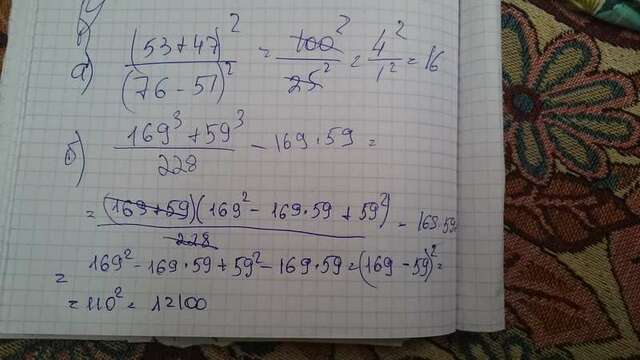 а) (53+47)² / (76-51)² = 100² / 25² = 4² / 1² = 16
б) 169³ + 59³ / 228 - 169·59 =
= (169+59)(169² - 169·59 + 59²) / 228 - 169·59
= 169² - 169·59 + 59² - 169·59 = (169-59)² =
= 110² = 12100